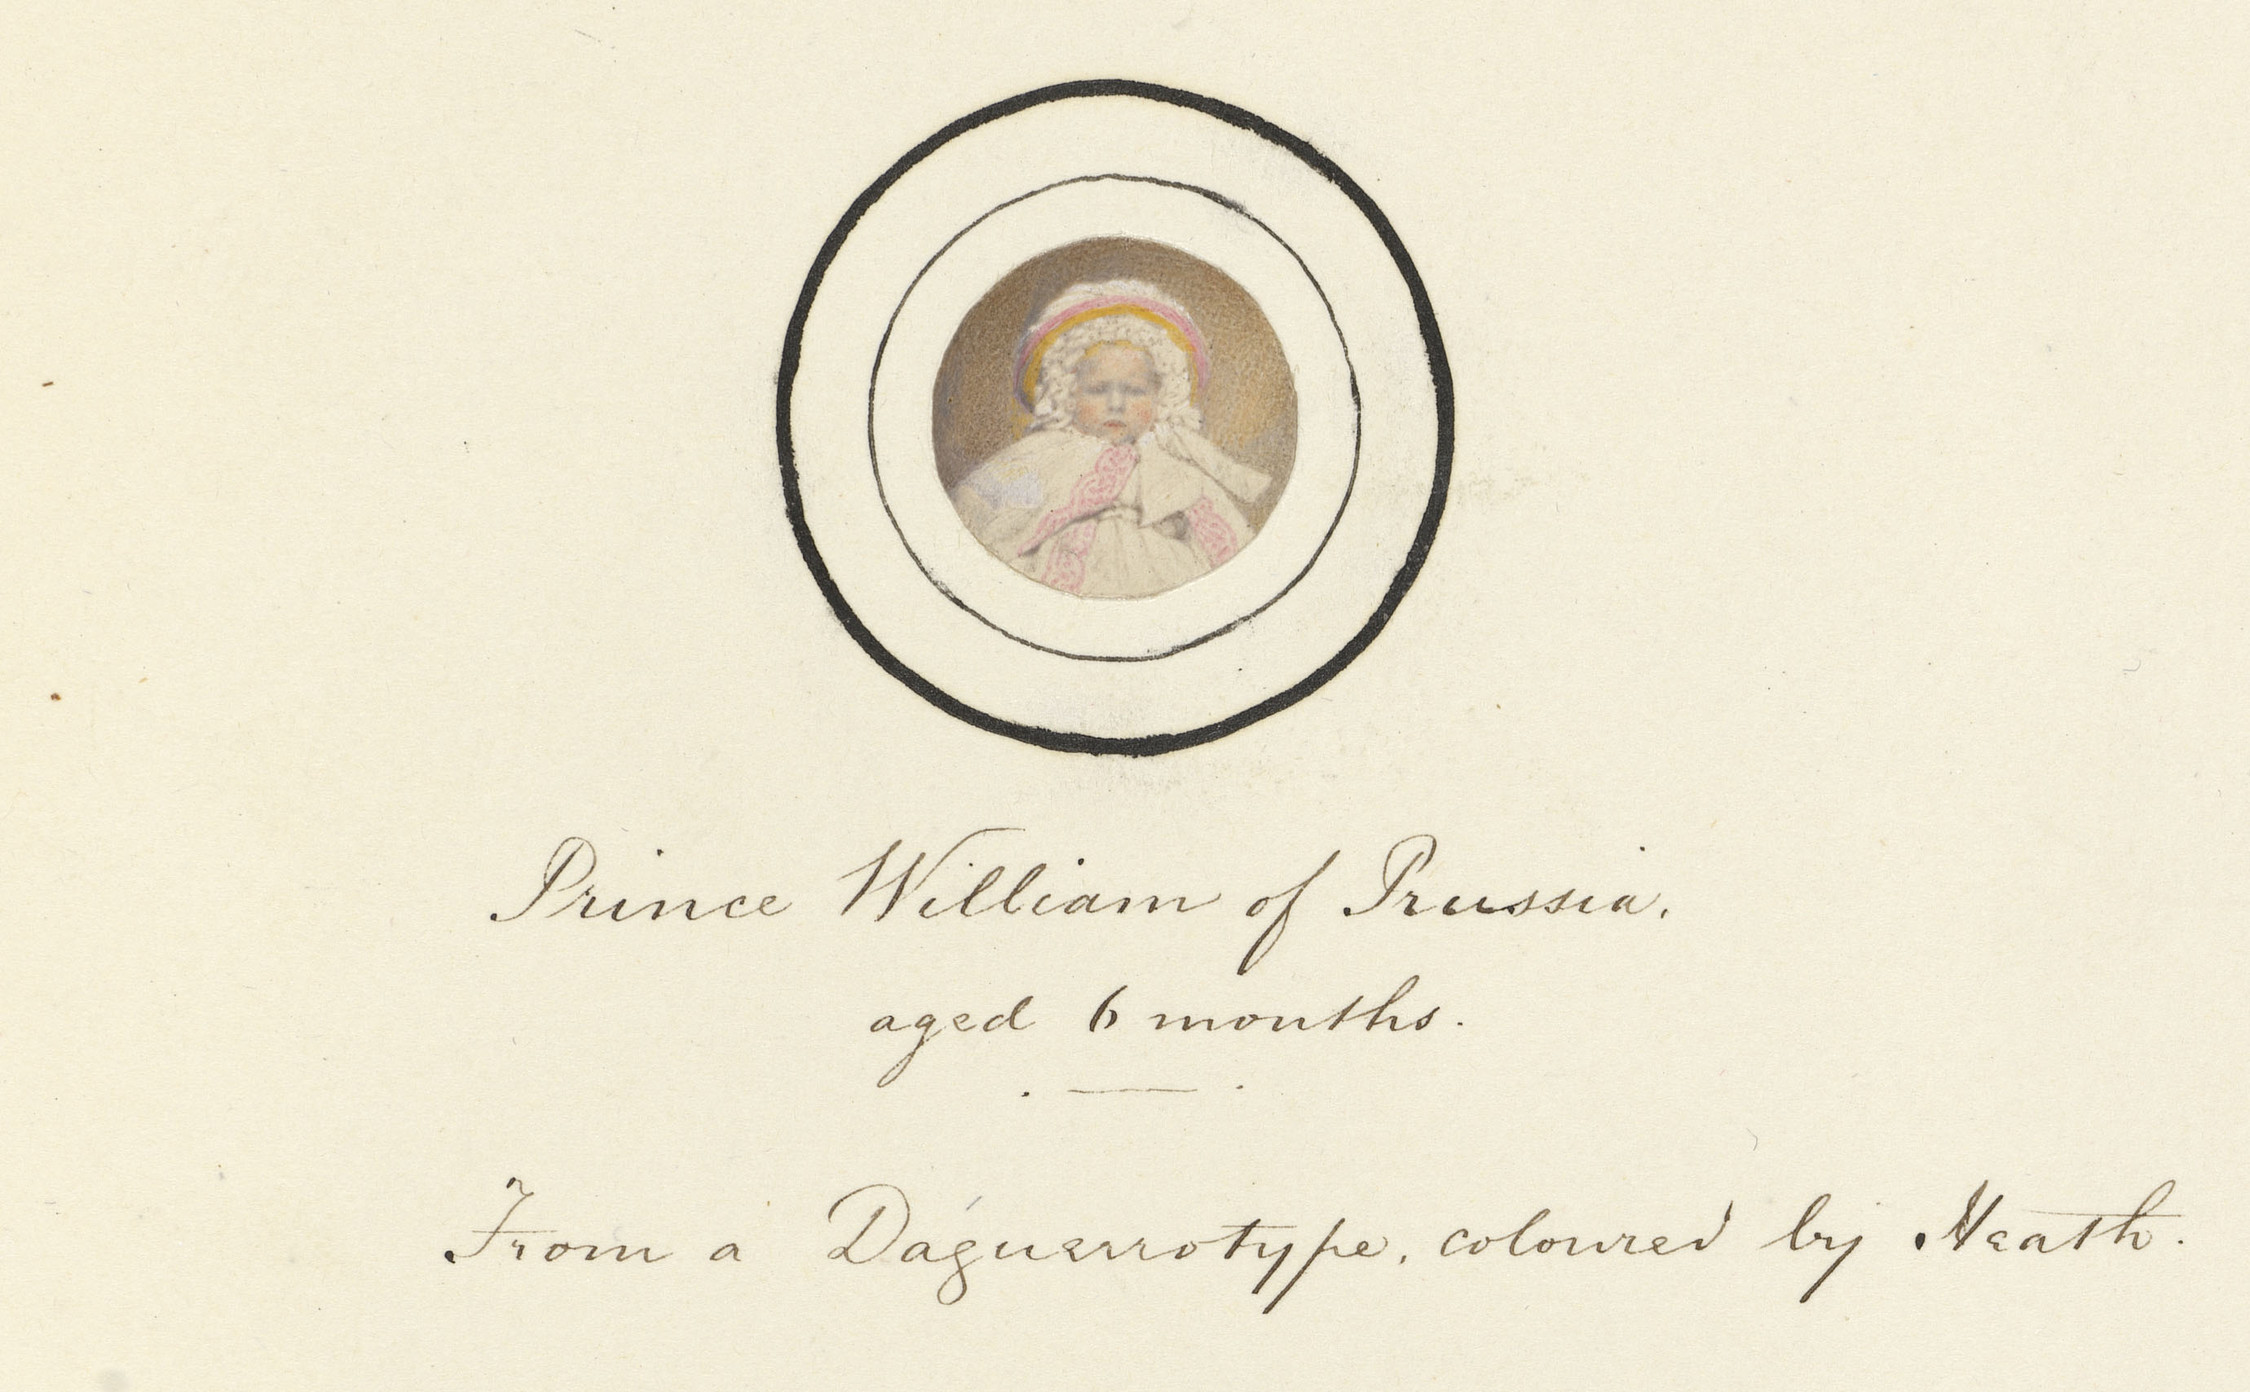 Prince William of Prussia.
aged 6 months.
From a Daguerrotype, coloured by Heath.